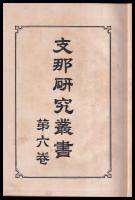 支那研究叢書
第六卷